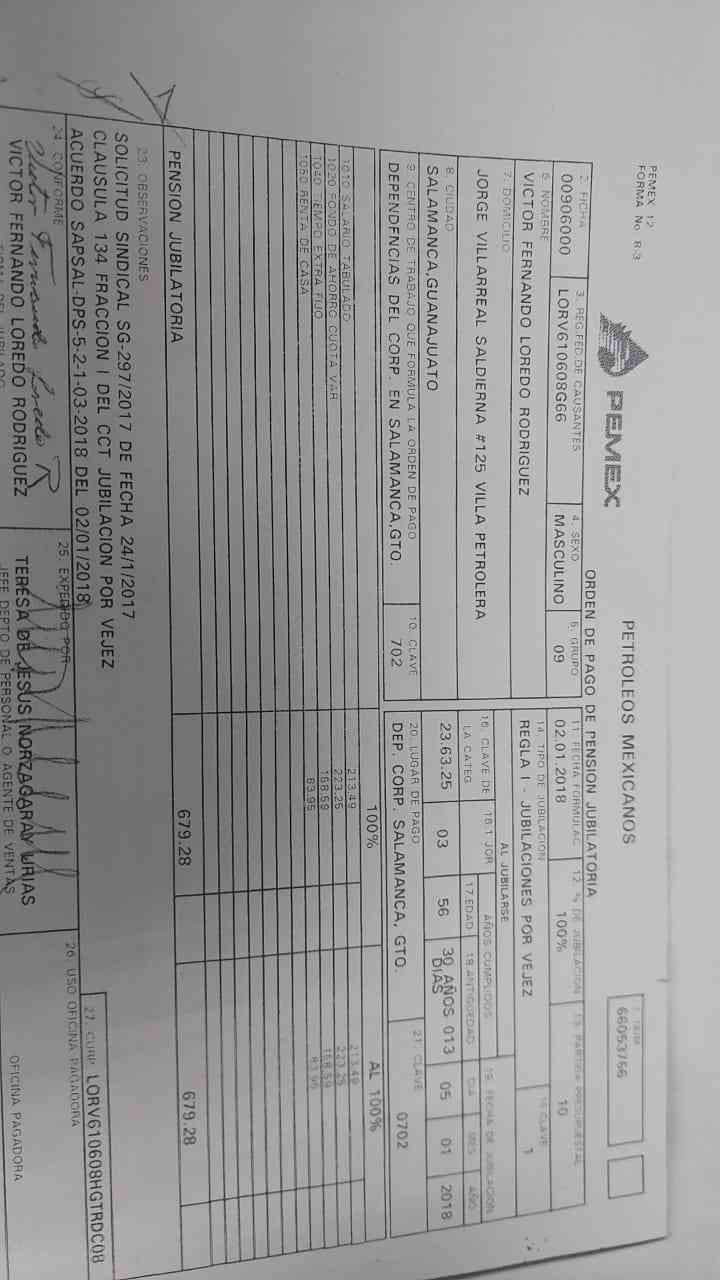 PEMEX 12
FORMA No. 8-3
PEMEX
PETROLEOS MEXICANOS
ORDEN DE PAGO DE PENSION JUBILATORIA
66053766
2. FICHA
3. REG.FED.DE CAUSANTES
4. SEXO
5. GRUPO
00906000
LORV610608G66
MASCULINO
09
6. NOMBRE
VICTOR FERNANDO LOREDO RODRIGUEZ
7. DOMICILIO
JORGE VILLARREAL SALDIERNA #125 VILLA PETROLERA
8. CIUDAD
SALAMANCA,GUANAJUATO
9. CENTRO DE TRABAJO QUE FORMULA LA ORDEN DE PAGO
10. CLAVE
DEPENDENCIAS DEL CORP. EN SALAMANCA,GTO.
702
11. FECHA FORMULAC.
12. % DE JUBILACION
13. PARTIDA PRESUPUESTAL
02.01.2018
100%
10
14. TIPO DE JUBILACION
15. CLAVE
REGLA I - JUBILACIONES POR VEJEZ
1
AL JUBILARSE
16. CLAVE DE LA CATEG
16.1 JOR
AÑOS CUMPLIDOS
17.EDAD
18.ANTIGUEDAD
19. FECHA DE JUBILACION
DIA
MES
AÑO
23.63.25
03
56
30 AÑOS 013 DIAS
05
01
2018
20. LUGAR DE PAGO
21. CLAVE
DEP. CORP. SALAMANCA, GTO.
0702
100%
AL 100%
1010 SALARIO TABULADO 213.49 213.49
1020 FONDO DE AHORRO CUOTA VAR 223.25 223.25
1040 TIEMPO EXTRA FIJO 158.59 158.59
1050 RENTA DE CASA 83.95 83.95
PENSION JUBILATORIA 679.28 679.28
23. OBSERVACIONES
SOLICITUD SINDICAL SG-297/2017 DE FECHA 24/1/2017
CLAUSULA 134 FRACCION I DEL CCT JUBILACION POR VEJEZ
ACUERDO SAPSAL-DPS-5-2-1-03-2018 DEL 02/01/2018
27. CURP LORV610608HGTRDC08
24. CONFORME
Victor Fernando Loredo R
VICTOR FERNANDO LOREDO RODRIGUEZ
FIRMA DEL JUBILADO
25. EXPEDIDO POR
TERESA DE JESUS NORZAGARAY URIAS
JEFE DEPTO DE PERSONAL O AGENTE DE VENTAS
26. USO OFICINA PAGADORA
OFICINA PAGADORA